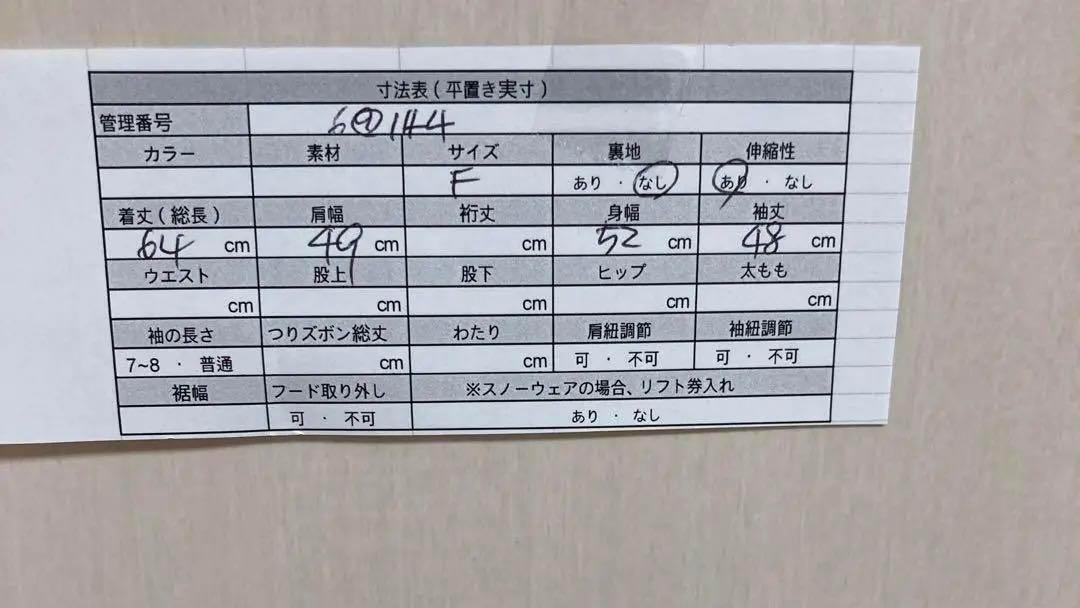 寸法表(平置き実寸)
管理番号 6@144
カラー 素材 サイズ 裏地 伸縮性
F あり ・ なし あり ・ なし
着丈(総長) 肩幅 裄丈 身幅 袖丈
64 cm 49 cm cm 52 cm 48 cm
ウエスト 股上 股下 ヒップ 太もも
cm cm cm cm cm
袖の長さ つりズボン総丈 わたり 肩紐調節 袖紐調節
7~8 ・ 普通 cm cm 可 ・ 不可 可 ・ 不可
裾幅 フード取り外し ※スノーウェアの場合、リフト券入れ
可 ・ 不可 あり ・ なし